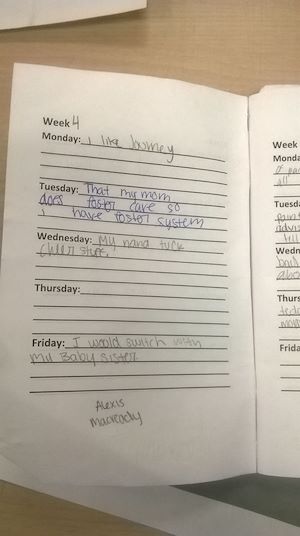 Week 4
Monday: I like
Tuesday: That my mom
does foster care so
i have foster system
Wednesday: My nana tuck
cheer stuff.
Thursday:
Friday: I would switch with
my Baby sister
Alexis
Macready
Week
Mond
Tuesd
Wedn
Thurs
Frida